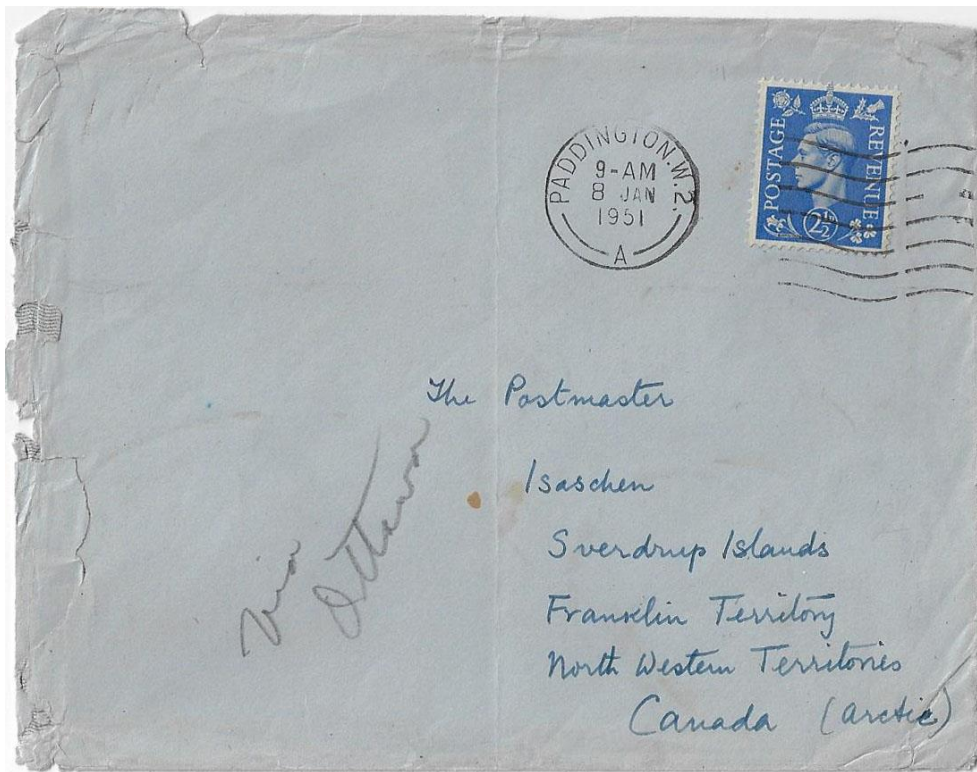 PADDINGTON.W.2.
9-AM
8 JAN
1951
A
POSTAGE
REVENUE
2½D
The Postmaster
Isaschen
Sverdrup Islands
Franklin Territory
North Western Territories
Canada (Arctic)
via
Ottawa